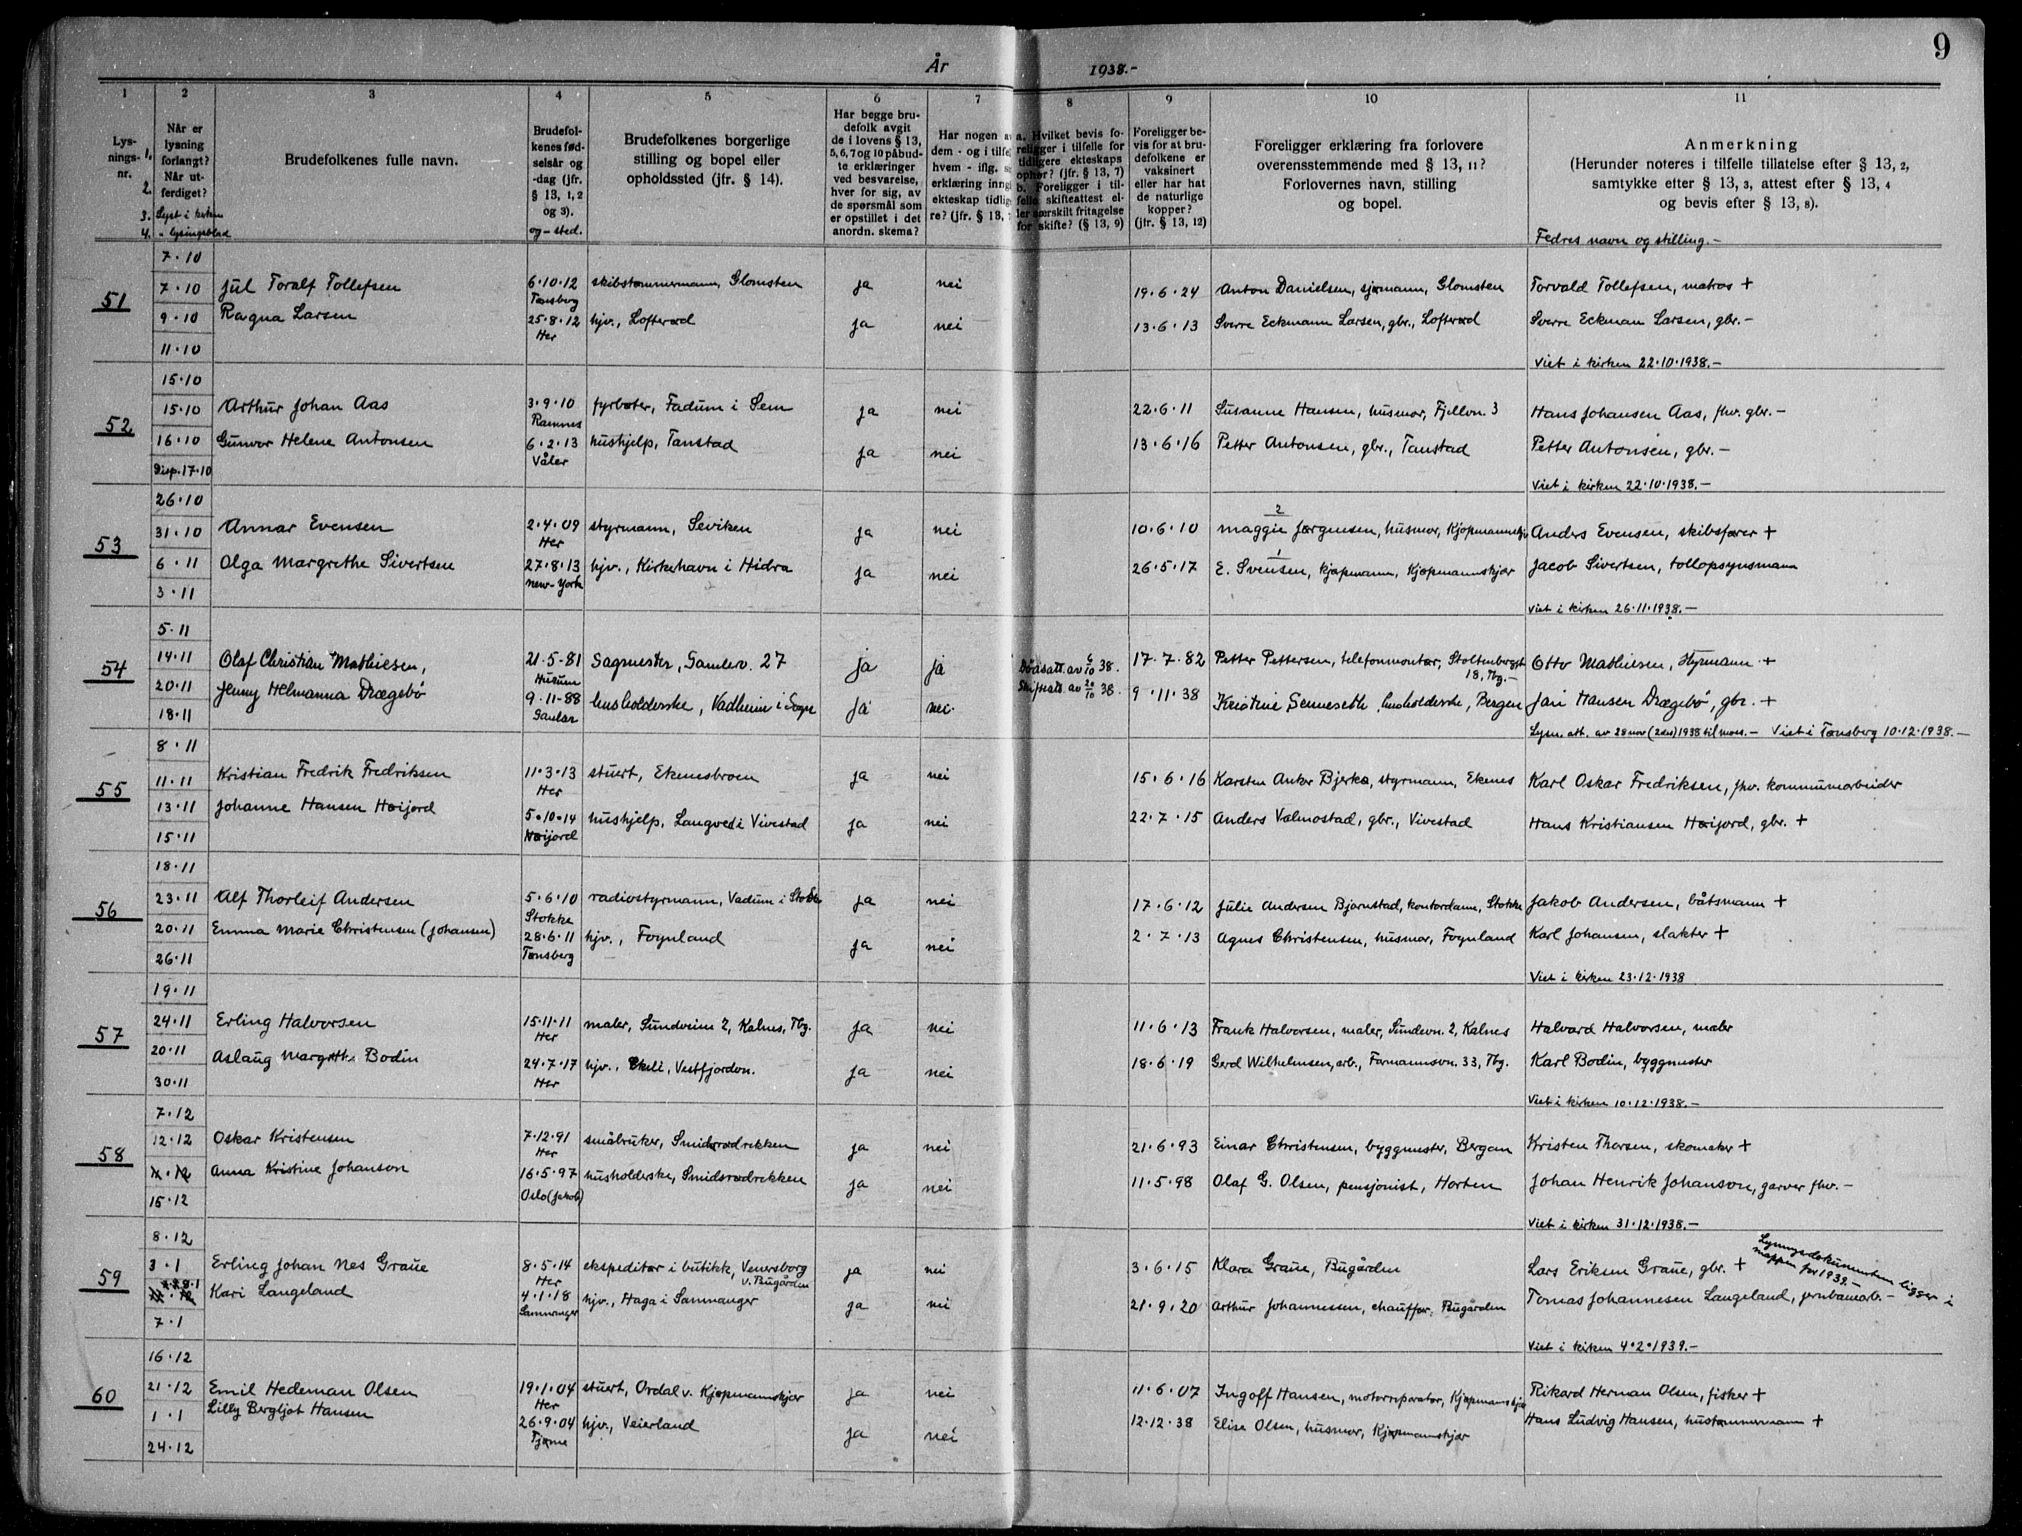 År 1938.-
9
1 2 3 4 5 6 7 8 9 10 11
Lysnings-nr.
1. Når er lysning forlangt?
2. Når utferdiget?
3. Lyst i kirken
4. " lysingsblad
Brudefolkenes fulle navn.
Brudefolkenes fødselsår og -dag (jfr. § 13, 1, 2 og 3). og - sted.
Brudefolkenes borgerlige stilling og bopel eller opholdssted (jfr. § 14).
Har begge brudefolk avgit de i lovens § 13, 5, 6, 7 og 10 påbudte erklæringer ved besvarelse, hver for sig, av de spørsmål som er opstillet i det anordn. skema?
Har nogen a dem - og i tilfe hvem - iflg. s erklæring inng ekteskap tidlig re? (jfr. § 13, 7
a. Hvilket bevis foreligger i tilfelle for tidligere ekteskaps ophør? (jfr. § 13, 7)
b. Foreligger i tilfelle skifteattest eller særskilt fritagelse for skifte? (§ 13, 9)
Foreligger bevis for at brudefolkene er vaksinert eller har hat de naturlige kopper? (jfr. § 13, 12)
Foreligger erklæring fra forlovere overensstemmende med § 13, 11? Forlovernes navn, stilling og bopel.
Anmerkning
(Herunder noteres i tilfelle tillatelse efter § 13, 2, samtykke efter § 13, 3, attest efter § 13, 4 og bevis efter § 13, 8).
Fedres navn og stilling.-
51
7·10
7·10
9·10
11·10
Jul Toralf Tollefsen 6·10·12 Tønsberg skibstømmermann, Glomsten ja nei 19·6·24 Anton Danielsen, sjømann, Glomsten Torvald Tollefsen, matros +
Ragna Larsen 25·8·12 Her hjv., Lofterød ja nei 13·6·13 Sverre Eckmann Larsen, gbr., Lofterød Sverre Eckman Larsen, gbr.-
Viet i kirken 22·10·1938.-
52
15·10
15·10
16·10
Disp.17·10
Arthur Johan Aas 3·9·10 Ramnes fyrbøter, Fadum i Sem ja nei 22·6·11 Susanne Hansen, husmor, Fjellvn. 3 Hans Johansen Aas, fhv. gbr.-
Gunvor Helene Antonsen 6·2·13 Våler hushjelp, Tanstad ja nei 13·6·16 Petter Antonsen, gbr., Tanstad Petter Antonsen, gbr.-
Viet i kirken 22·10·1938.-
53
26·10
31·10
6·11
3·11
Annar Evensen 2·4·09 Her styrmann, Seviken ja nei 10·6·10 2 Maggie Jørgensen, husmor, Anders Evensen, skibsfører +
Olga Margrethe Sivertsen 27·8·13 New-York hjv., Kirkehavn i Hidra ja nei 26·5·17 1 E. Svensen, kjøpmann, Kjøpmannskjær Jacob Sivertsen, tollopsynsmann
Viet i kirken 26·11·1938.-
54
5·11
14·11
20·11
18·11
Olaf Christian Mathiesen, 21·5-81 Hurum Sagmester, Gamlev. 27 ja ja Dødsatt. av 6/10 38. 17·7·82 Petter Pettersen, telefonmontør, Stoltenbergsgt 18, Tbg.- Otto Mathiesen, styrmann +
Jenny Helmanna Drægebø 9·11-88 Gaular husholderske, Vadheim i Sogn ja nei. Skifteatt. av 20/10 38. 9·11·38 Kristine Senneseth, husholderske, Bergen Jan Hansen Drægebø, gbr. +
Lysn. att. av 28 nov (2 eks) 1938 til mors.- Viet i Tønsberg 10·12·1938.-
55
8·11
11·11
13·11
15·11
Kristian Fredrik Fredriksen 11·3·13 Her stuert, Ekenesbroen ja nei 15·6·16 Karsten Anker Bjerkø, styrmann, Ekenes Karl Oskar Fredriksen, fhv. kommunearbeider
Johanne Hansen Høijord 5·10·14 Høijord hushjelp, Langved i Vivestad ja nei 22·7·15 Anders Valmostad, gbr., Vivestad Hans Kristiansen Høijord, gbr. +
56
18·11
23·11
20·11
26·11
Alf Thorleif Andersen 5·6·10 Stokke radiostyrmann, Vadum i Stokke ja nei 17·6·12 Julie Andersen Bjørnstad, kontordame, Stokke Jakob Andersen, båtsmann +
Emma Marie Christensen (Johansen) 28·6·11 Tønsberg hjv., Føynland ja nei 2·7·13 Agnes Christensen, husmor, Føynland Karl Johansen, slakter +
Viet i kirken 23·12·1938
57
19·11
24·11
20·11
30·11
Erling Halvorsen 15·11·11 Her maler, Sundveien 2, Kalnes, Tbg. ja nei 11·6·13 Frank Halvorsen, maler, Sundevn. 2, Kalnes Halvard Halvorsen, maler
Aslaug Margrethe Bodin 24·7·17 Her hjv., Ekeli, Vestfjordvn. ja nei 18·6·19 Gerd Wilhelmsen, arb., Farmannsvn. 33, Tbg. Karl Bodin, byggmester
Viet i kirken 10·12·1938.-
58
7·12
12·12
11·12
15·12
Oskar Kristensen 7·12·91 Her småbruker, Smidsrødrekken ja nei 21·6·93 Einar Christensen, byggmester, Bergan Kristen Thorsen, skomaker +
Anna Kristine Johanson 16·5·97 Oslo (Jakob) husholderske, Smidsrødrekken ja nei 11·5·98 Olaf G. Olsen, pensjonist, Horten Johan Henrik Johanson, garver fhv.-
Viet i kirken 31·12·1938.-
59
8·12
3·1
7·1
Erling Johan Nes Graue 8·5·14 Her ekspeditør i butikk, Venersborg v. Bugården ja nei 3·6·15 Klara Graue, Bugården Lars Eriksen Graue, gbr. +
Lysningsdokumentene ligger i mappen for 1939.-
Kari Langeland 4·1·18 Samnanger hjv., Haga i Samnanger ja nei 21·9·20 Arthur Johannessen, chauffør, Bugården Tomas Johannesen Langeland, jernbanearb.-
Viet i kirken 4·2·1939.-
60
16·12
21·12
1·1
24·12
Emil Hedeman Olsen 19·1·04 Her stuert, Ordal v. Kjøpmannskjær ja nei 11·6·07 Ingolf Hansen, motorreparatør, Kjøpmannskjær Rikard Herman Olsen, fisker +
Lilly Bergljot Hansen 26·9·04 Tjøme hjv., Veierland ja nei 12·12·38 Elise Olsen, husmor, Kjøpmannskjær Hans Ludvig Hansen, hustømmermann +